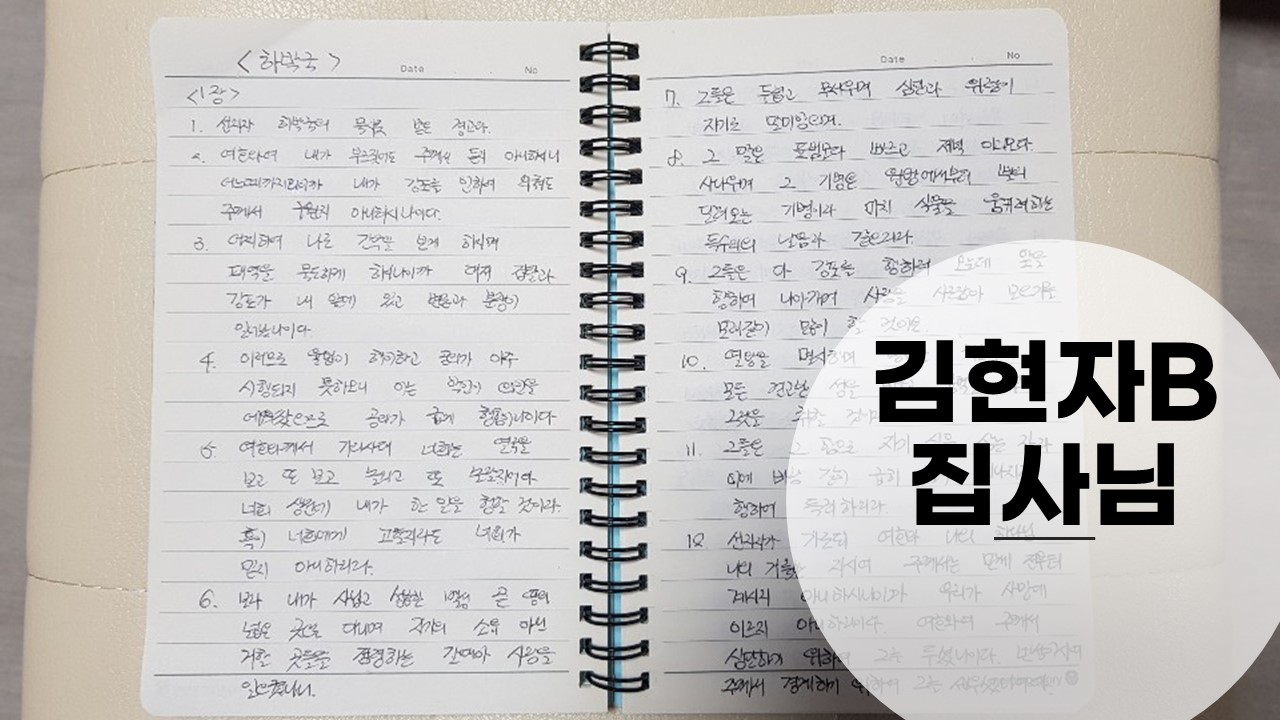 <하박국>
Date No
<1장>
1. 선지자 하박국이 묵시로 받은 경고라.
2. 여호와여 내가 부르짖어도 주께서 듣지 아니하시니
어느때까지리이까 내가 강포를 인하여 외쳐도
주께서 구원치 아니하시나이다.
3. 어찌하여 나로 간악을 보게 하시며
패역을 목도하게 하시나이까 대저 겁탈과
강포가 내 앞에 있고 변론과 분쟁이
일어났나이다
4. 이러므로 율법이 해이하고 공의가 아주
시행되지 못하오니 이는 악인이 의인을
에워쌌으므로 공의가 굽게 행함이니이다
5. 여호와께서 가라사대 너희는 열국을
보고 또 보고 놀라고 또 놀랄지어다
너희 생전에 내가 한 일을 행할 것이라
혹 너희에게 고할지라도 너희가
믿지 아니하리라.
6. 보라 내가 사납고 성급한 백성 곧 땅의
넓은 곳으로 다니며 자기의 소유 아닌
거할 곳들을 점령하는 갈대아 사람을
일으켰나니.
Date No
7. 그들은 두렵고 무서우며 심판과 위령이
자기로 말미암으며.
8. 그 말은 표범보다 빠르고 저녁 이리보다
사나우며 그 기병은 원방에서부터 빨리
달려오는 기병이라 마치 식물을 움키려하는
독수리의 날음과 같으리라
9. 그들은 다 강포를 행하러 오는데 앞을
향하여 나아가며 사람을 사로잡아 모으기를
모래같이 많이 할 것이요.
10. 열왕을 멸시하며
모든 견고한 성을
그것을 취할 것이며
11. 그들은 그 힘으로 자기 신을 삼는 자라
이에 바람 같이 급히
향하여 득죄하리라.
12. 선지자가 가로되 여호와 나의 하나님
나의 거룩한 자시여 주께서는 만세 전부터
계시지 아니하시나이까 우리가 사망에
이르지 아니하리이다. 여호와여 주께서
심판하기 위하여 그를 두셨나이다.
주께서 경계하기 위하여 그를
김현자B
집사님